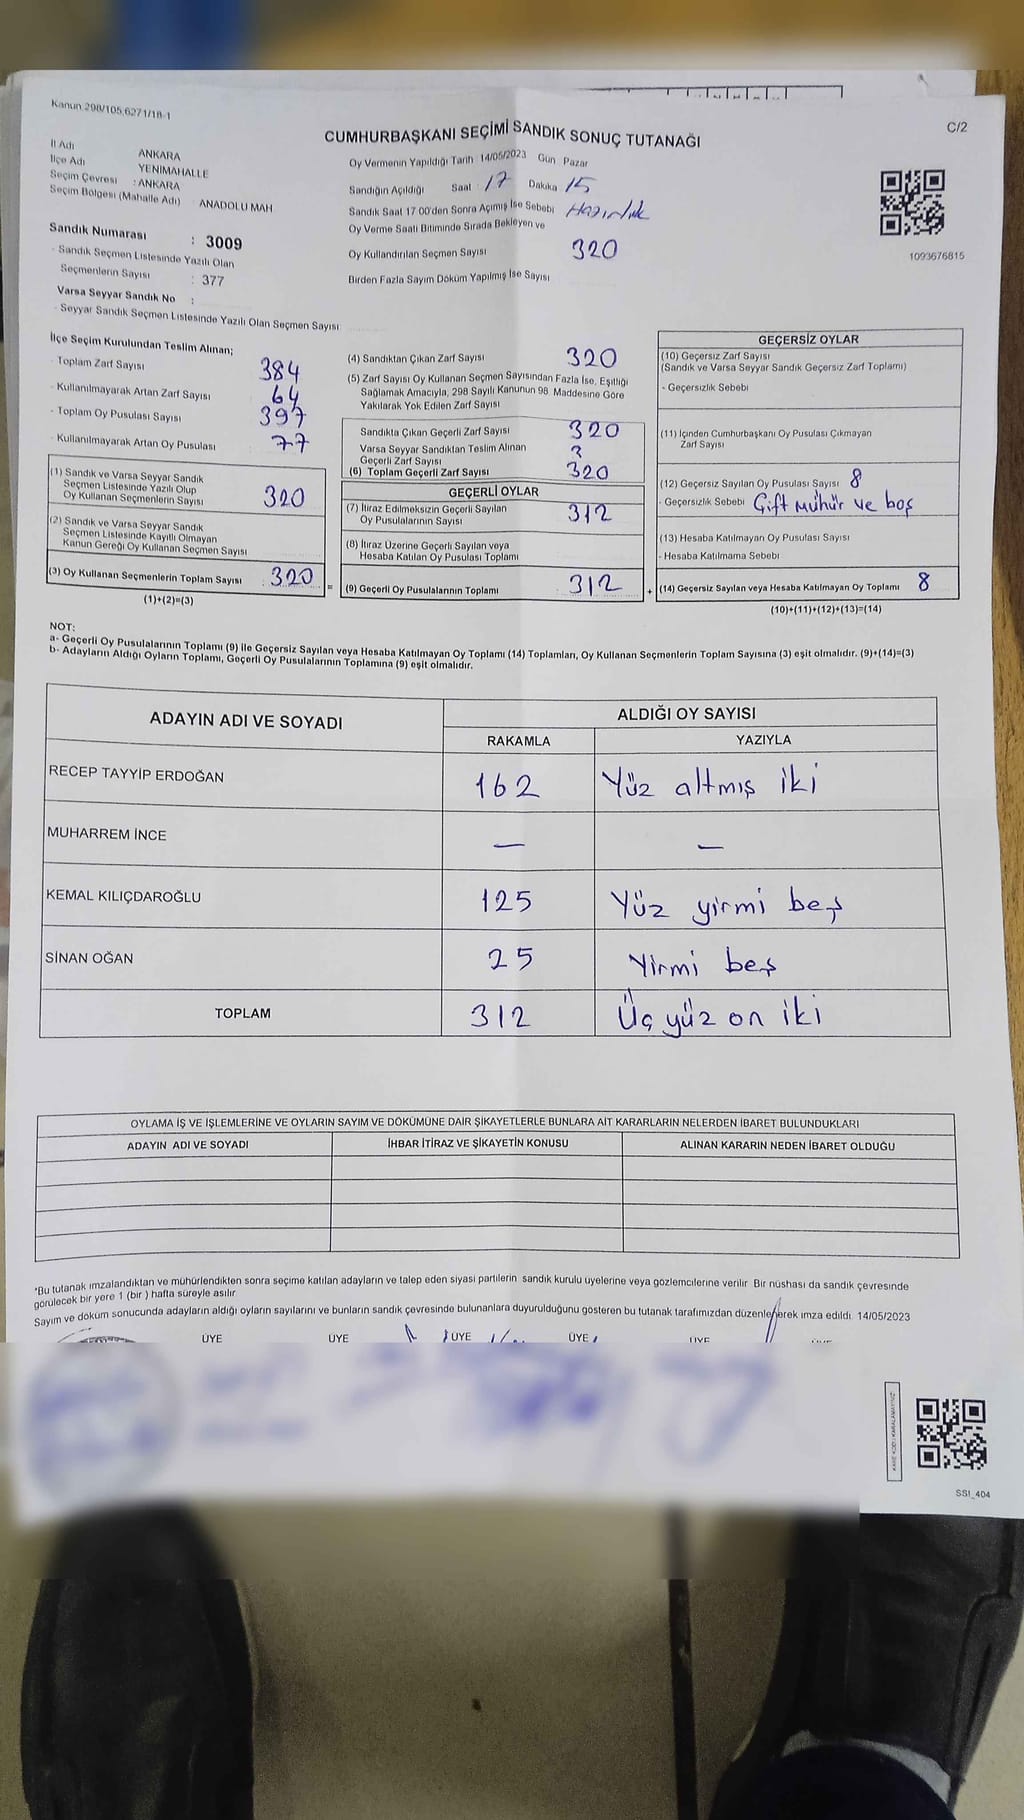 Kanun 298/105,6271/18-1
C/2
CUMHURBAŞKANI SEÇİMİ SANDIK SONUÇ TUTANAĞI
İl Adı ANKARA
İlçe Adı YENİMAHALLE
Seçim Çevresi : ANKARA
Seçim Bölgesi (Mahalle Adı) ANADOLU MAH
Sandık Numarası : 3009
- Sandık Seçmen Listesinde Yazılı Olan
Seçmenlerin Sayısı : 377
Varsa Seyyar Sandık No :
- Seyyar Sandık Seçmen Listesinde Yazılı Olan Seçmen Sayısı
Oy Vermenin Yapıldığı Tarih 14/05/2023 Gün Pazar
Sandığın Açıldığı Saat : 17 Dakika 15
Sandık Saat 17 00'den Sonra Açımış İse Sebebi Hazırlık
Oy Verme Saati Bitiminde Sırada Bekleyen ve
Oy Kullandırılan Seçmen Sayısı 320
Birden Fazla Sayım Döküm Yapılmış İse Sayısı
1093676815
İlçe Seçim Kurulundan Teslim Alınan;
- Toplam Zarf Sayısı 384
- Kullanılmayarak Artan Zarf Sayısı 64
- Toplam Oy Pusulası Sayısı 397
- Kullanılmayarak Artan Oy Pusulası 77
(1) Sandık ve Varsa Seyyar Sandık
Seçmen Listesinde Yazılı Olup
Oy Kullanan Seçmenlerin Sayısı 320
(2) Sandık ve Varsa Seyyar Sandık
Seçmen Listesinde Kayıtlı Olmayan
Kanun Gereği Oy Kullanan Seçmen Sayısı
(3) Oy Kullanan Seçmenlerin Toplam Sayısı : 320 =
(1)+(2)=(3)
(4) Sandıktan Çıkan Zarf Sayısı 320
(5) Zarf Sayısı Oy Kullanan Seçmen Sayısından Fazla İse, Eşitliği
Sağlamak Amacıyla, 298 Sayılı Kanunun 98 Maddesine Göre
Yakılarak Yok Edilen Zarf Sayısı
Sandıkta Çıkan Geçerli Zarf Sayısı 320
Varsa Seyyar Sandıktan Teslim Alınan
Geçerli Zarf Sayısı
(6) Toplam Geçerli Zarf Sayısı 320
GEÇERLİ OYLAR
(7) İtiraz Edilmeksizin Geçerli Sayılan
Oy Pusulalarının Sayısı 312
(8) İtiraz Üzerine Geçerli Sayılan veya
Hesaba Katılan Oy Pusulası Toplamı
(9) Geçerli Oy Pusulalarının Toplamı 312 +
GEÇERSİZ OYLAR
(10) Geçersiz Zarf Sayısı
(Sandık ve Varsa Seyyar Sandık Geçersiz Zarf Toplamı)
- Geçersizlik Sebebi
(11) İçinden Cumhurbaşkanı Oy Pusulası Çıkmayan
Zarf Sayısı
(12) Geçersiz Sayılan Oy Pusulası Sayısı 8
- Geçersizlik Sebebi Çift mühür ve boş
(13) Hesaba Katılmayan Oy Pusulası Sayısı
- Hesaba Katılmama Sebebi
(14) Geçersiz Sayılan veya Hesaba Katılmayan Oy Toplamı 8
(10)+(11)+(12)+(13)=(14)
NOT:
a- Geçerli Oy Pusulalarının Toplamı (9) ile Geçersiz Sayılan veya Hesaba Katılmayan Oy Toplamı (14) Toplamları, Oy Kullanan Seçmenlerin Toplam Sayısına (3) eşit olmalıdır. (9)+(14)=(3)
b- Adayların Aldığı Oyların Toplamı, Geçerli Oy Pusulalarının Toplamına (9) eşit olmalıdır.
ADAYIN ADI VE SOYADI ALDIĞI OY SAYISI
RAKAMLA YAZIYLA
RECEP TAYYİP ERDOĞAN 162 Yüz altmış iki
MUHARREM İNCE — —
KEMAL KILIÇDAROĞLU 125 Yüz yirmi beş
SİNAN OĞAN 25 Yirmi beş
TOPLAM 312 Üç yüz on iki
OYLAMA İŞ VE İŞLEMLERİNE VE OYLARIN SAYIM VE DÖKÜMÜNE DAİR ŞİKAYETLERLE BUNLARA AİT KARARLARIN NELERDEN İBARET BULUNDUKLARI
ADAYIN ADI VE SOYADI İHBAR İTİRAZ VE ŞİKAYETİN KONUSU ALINAN KARARIN NEDEN İBARET OLDUĞU
*Bu tutanak imzalandıktan ve mühürlendikten sonra seçime katılan adayların ve talep eden siyasi partilerin sandık kurulu üyelerine veya gözlemcilerine verilir Bir nüshası da sandık çevresinde
görülecek bir yere 1 (bir ) hafta süreyle asılır
Sayım ve döküm sonucunda adayların aldığı oyların sayılarını ve bunların sandık çevresinde bulunanlara duyurulduğunu gösteren bu tutanak tarafımızdan düzenlenerek imza edildi. 14/05/2023
ÜYE ÜYE ÜYE ÜYE
SSI_404